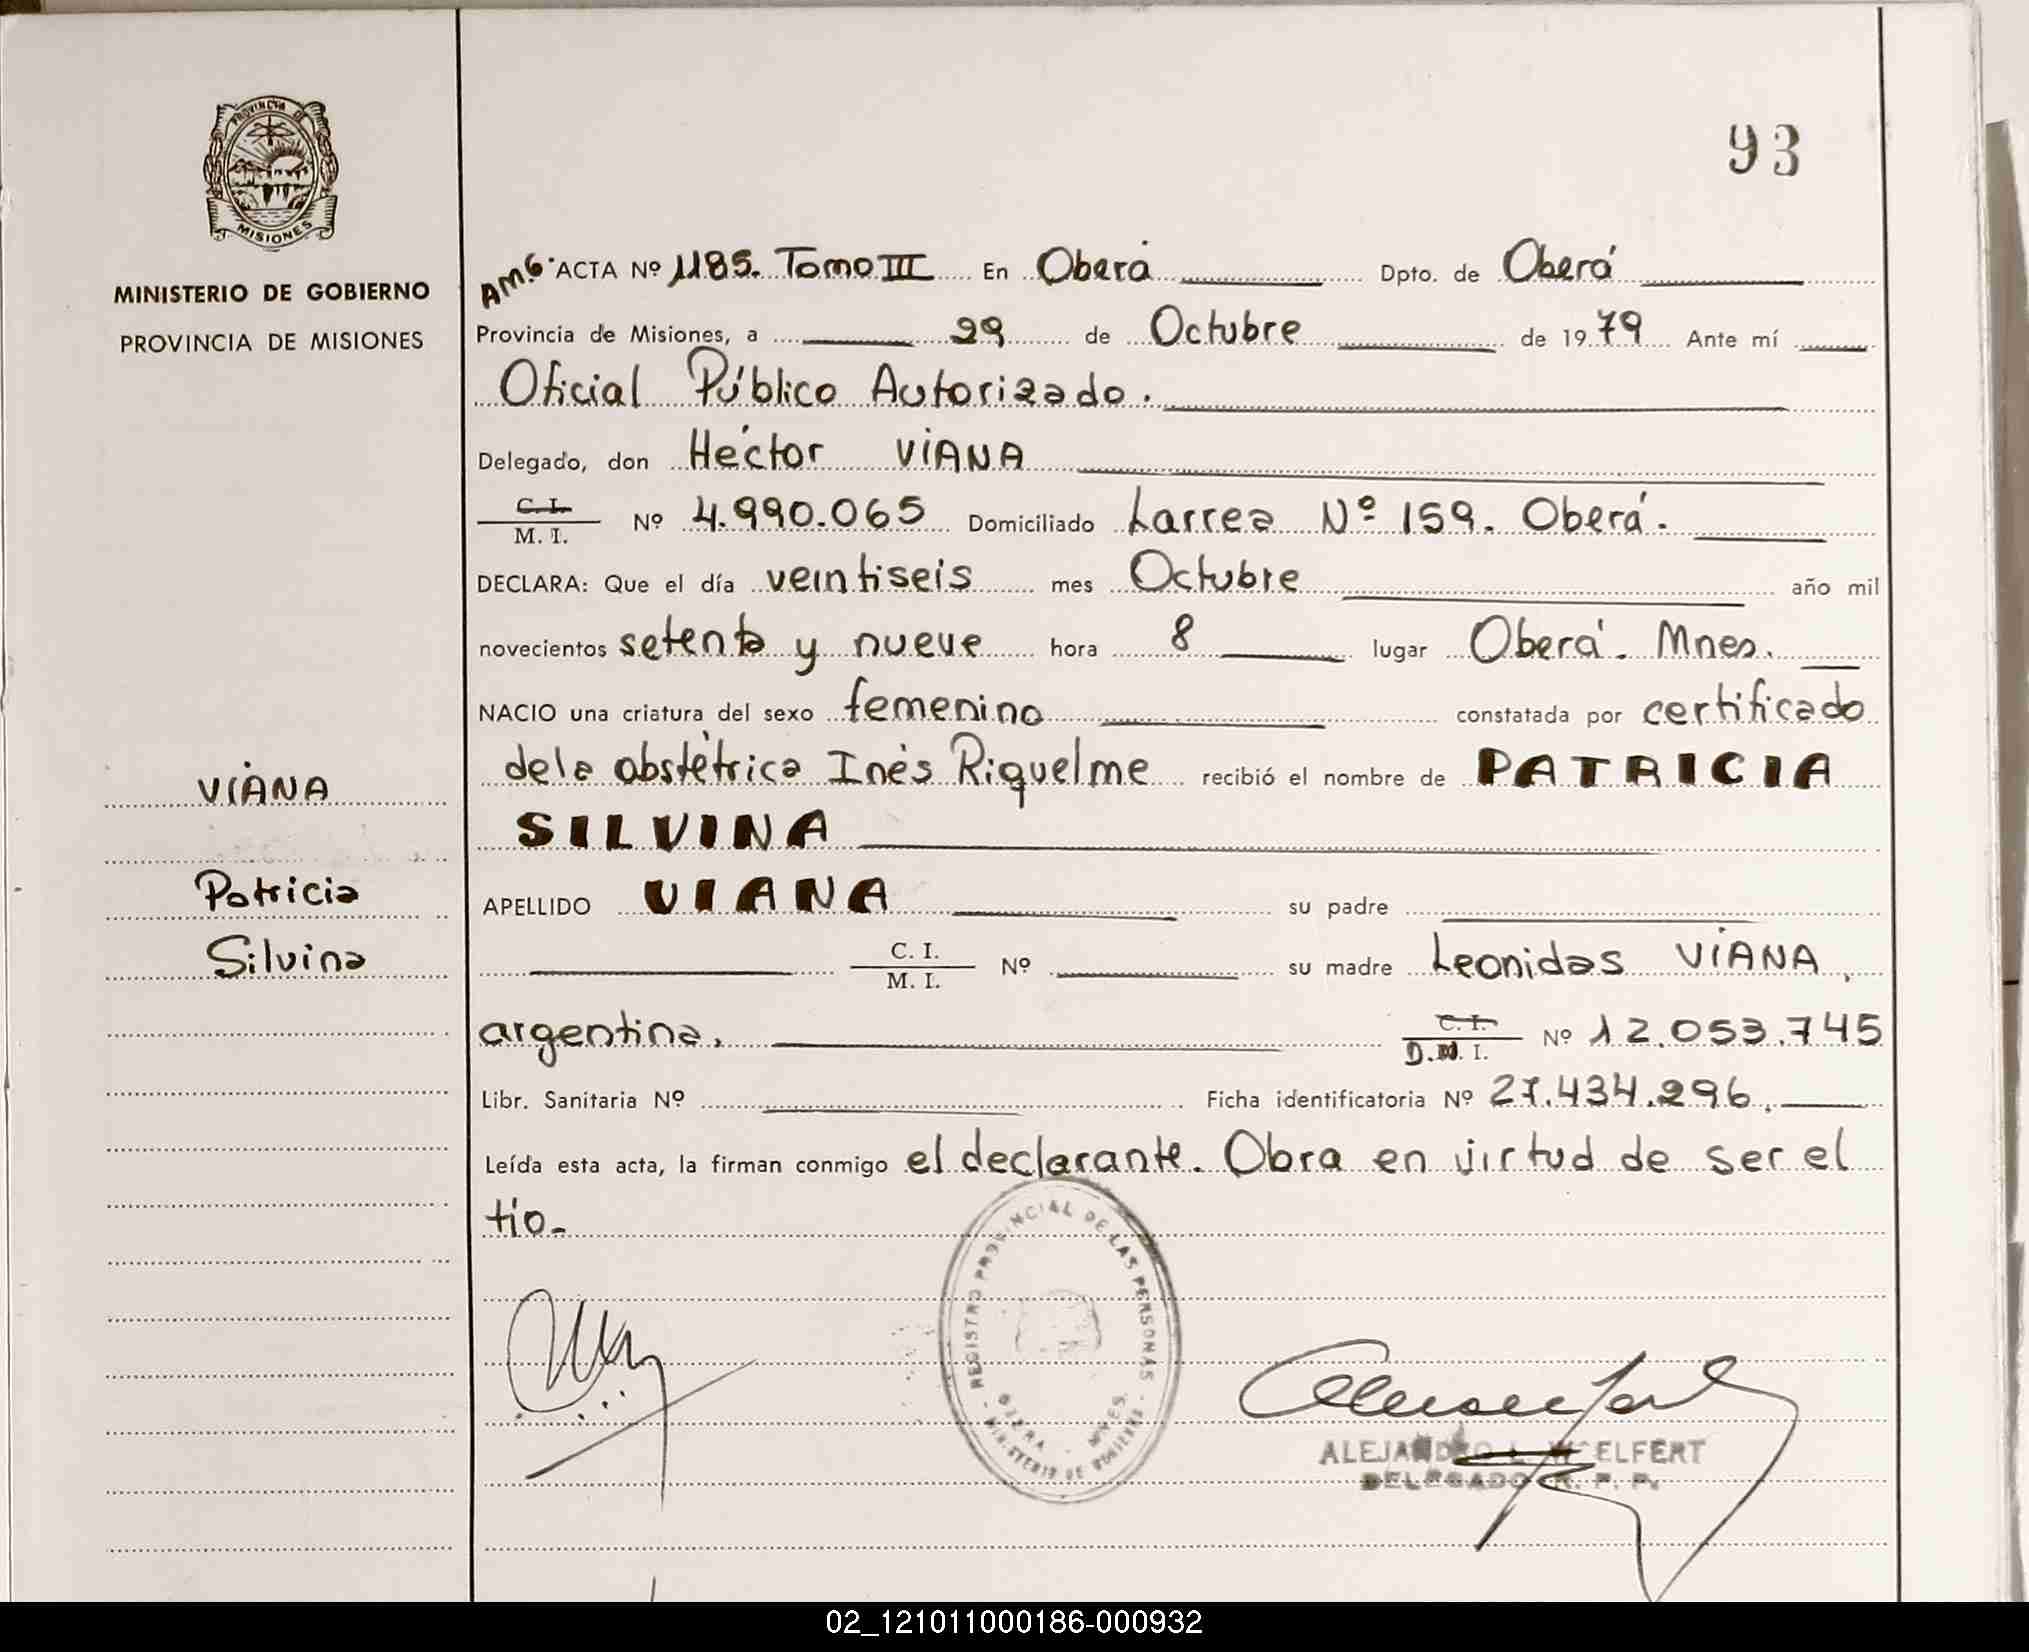 PROVINCIA DE
MISIONES
MINISTERIO DE GOBIERNO
PROVINCIA DE MISIONES
VIANA
Patricia
Silvina
93
Am6. ACTA Nº 1185. Tomo III En Oberá Dpto. de Oberá
Provincia de Misiones, a 29 de Octubre de 1979 Ante mí
Oficial Público Autorizado.
Delegado, don Héctor VIANA
C. I.
M. I. Nº 4.990.065 Domiciliado Larrea Nº 159. Oberá.
DECLARA: Que el día veintiseis mes Octubre año mil
novecientos setenta y nueve hora 8 lugar Oberá. Mnes.
NACIO una criatura del sexo femenino constatada por certificado
dela obstétrica Inés Riquelme recibió el nombre de PATRICIA
SILVINA
APELLIDO VIANA su padre
C. I.
M. I. Nº su madre Leonidas VIANA,
argentina. C. I.
D.M. I. Nº 12.053.745
Libr. Sanitaria Nº Ficha identificatoria Nº 27.434.296.
Leída esta acta, la firman conmigo el declarante. Obra en virtud de ser el
tío.-
REGISTRO PROVINCIAL DE LAS PERSONAS
MINISTERIO DE GOBIERNO
MNES.
ALEJANDRO L. WOELFERT
DELEGADO R. P. P.
02_121011000186-000932